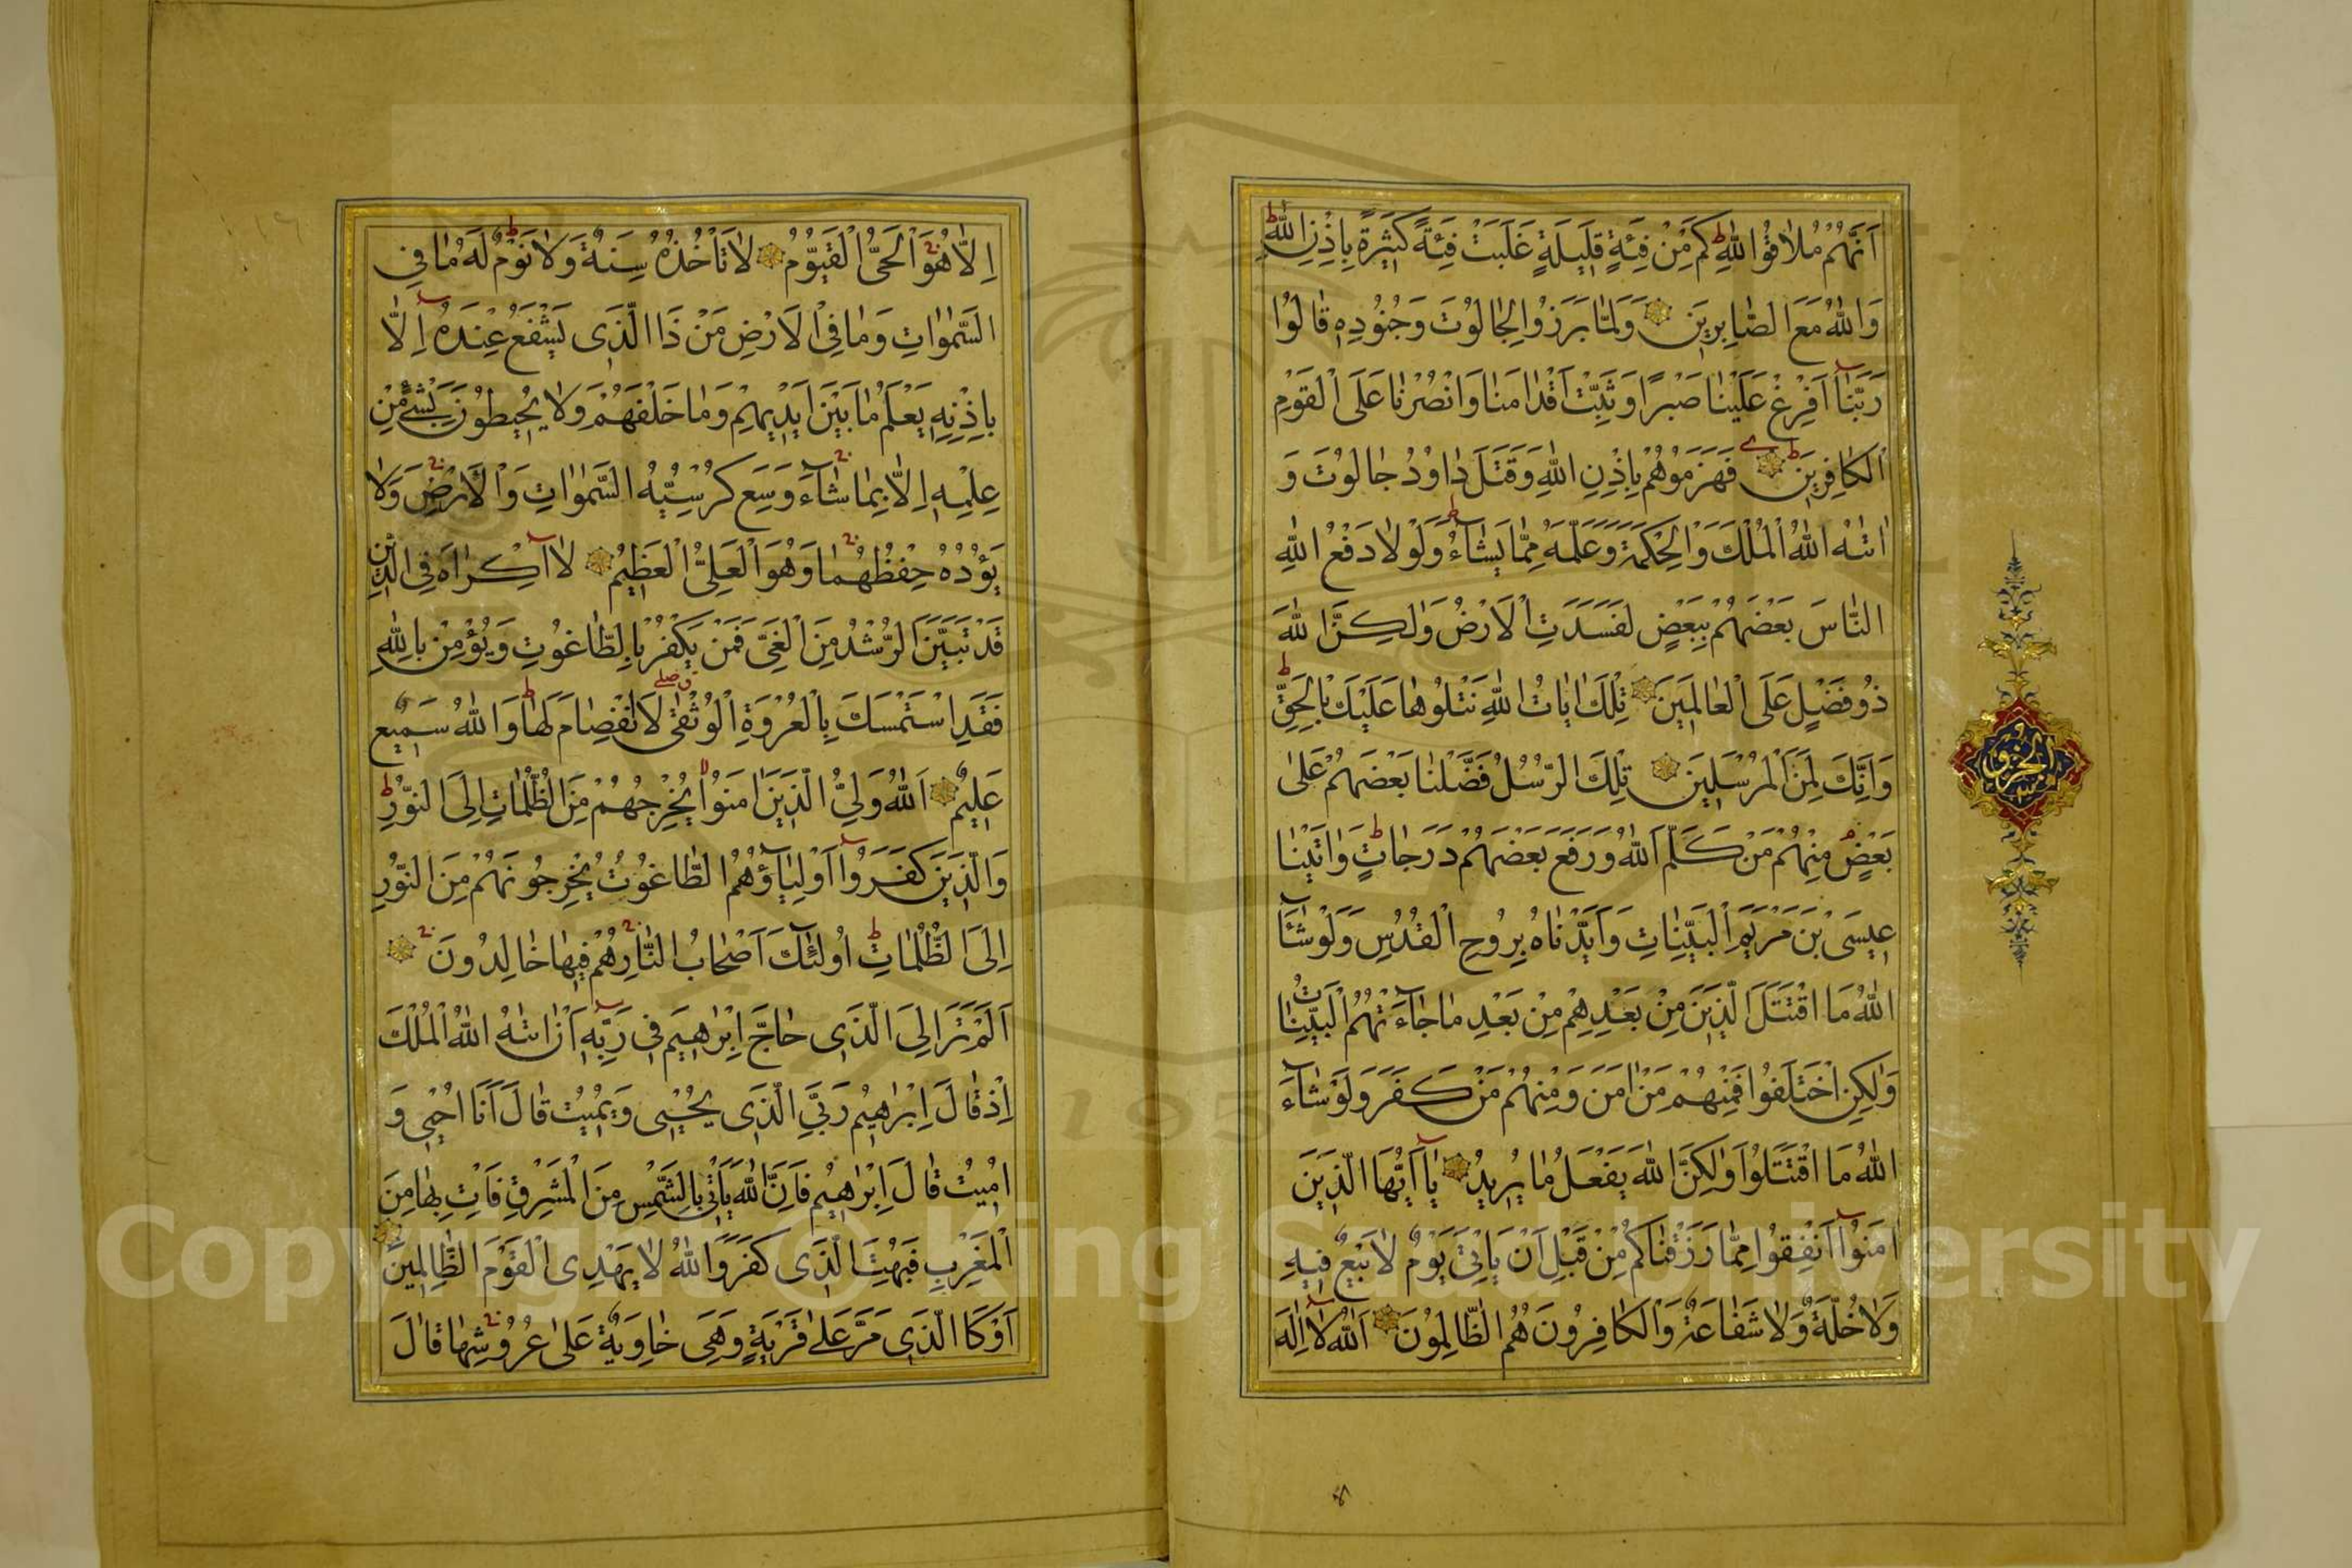 اَنَّهُمْ مُلَاقُوا اللّٰهِ كَمْ مِنْ فِئَةٍ قَلِيلَةٍ غَلَبَتْ فِئَةً كَثِيرَةً بِاِذْنِ اللّٰهِ
وَاللّٰهُ مَعَ الصَّابِرِينَ وَلَمَّا بَرَزُوا لِجَالُوتَ وَجُنُودِهِ قَالُوا
رَبَّنَا اَفْرِغْ عَلَيْنَا صَبْرًا وَثَبِّتْ اَقْدَامَنَا وَانْصُرْنَا عَلَى الْقَوْمِ
الْكَافِرِينَ فَهَزَمُوهُمْ بِاِذْنِ اللّٰهِ وَقَتَلَ دَاوُدُ جَالُوتَ وَ
اٰتٰهُ اللّٰهُ الْمُلْكَ وَالْحِكْمَةَ وَعَلَّمَهُ مِمَّا يَشَاءُ وَلَوْلَا دَفْعُ اللّٰهِ
النَّاسَ بَعْضَهُمْ بِبَعْضٍ لَفَسَدَتِ الْاَرْضُ وَلٰكِنَّ اللّٰهَ
ذُو فَضْلٍ عَلَى الْعَالَمِينَ تِلْكَ اٰيَاتُ اللّٰهِ نَتْلُوهَا عَلَيْكَ بِالْحَقِّ
وَاِنَّكَ لَمِنَ الْمُرْسَلِينَ تِلْكَ الرُّسُلُ فَضَّلْنَا بَعْضَهُمْ عَلٰى
بَعْضٍ مِنْهُمْ مَنْ كَلَّمَ اللّٰهُ وَرَفَعَ بَعْضَهُمْ دَرَجَاتٍ وَاٰتَيْنَا
عِيسَى بْنَ مَرْيَمَ الْبَيِّنَاتِ وَاَيَّدْنَاهُ بِرُوحِ الْقُدُسِ وَلَوْ شَاءَ
اللّٰهُ مَا اقْتَتَلَ الَّذِينَ مِنْ بَعْدِهِمْ مِنْ بَعْدِ مَا جَاءَتْهُمُ الْبَيِّنَاتُ
وَلٰكِنِ اخْتَلَفُوا فَمِنْهُمْ مَنْ اٰمَنَ وَمِنْهُمْ مَنْ كَفَرَ وَلَوْ شَاءَ
اللّٰهُ مَا اقْتَتَلُوا وَلٰكِنَّ اللّٰهَ يَفْعَلُ مَا يُرِيدُ يَا اَيُّهَا الَّذِينَ
اٰمَنُوا اَنْفِقُوا مِمَّا رَزَقْنَاكُمْ مِنْ قَبْلِ اَنْ يَاْتِيَ يَوْمٌ لَا بَيْعٌ فِيهِ
وَلَا خُلَّةٌ وَلَا شَفَاعَةٌ وَالْكَافِرُونَ هُمُ الظَّالِمُونَ اَللّٰهُ لَا اِلٰهَ
الجزو
اِلَّا هُوَ الْحَيُّ الْقَيُّومُ لَا تَاْخُذُهُ سِنَةٌ وَلَا نَوْمٌ لَهُ مَا فِي
السَّمٰوَاتِ وَمَا فِي الْاَرْضِ مَنْ ذَا الَّذِي يَشْفَعُ عِنْدَهُ اِلَّا
بِاِذْنِهِ يَعْلَمُ مَا بَيْنَ اَيْدِيهِمْ وَمَا خَلْفَهُمْ وَلَا يُحِيطُونَ بِشَيْءٍ مِنْ
عِلْمِهِ اِلَّا بِمَا شَاءَ وَسِعَ كُرْسِيُّهُ السَّمٰوَاتِ وَالْاَرْضَ وَلَا
يَؤُدُهُ حِفْظُهُمَا وَهُوَ الْعَلِيُّ الْعَظِيمُ لَا اِكْرَاهَ فِي الدِّينِ
قَدْ تَبَيَّنَ الرُّشْدُ مِنَ الْغَيِّ فَمَنْ يَكْفُرْ بِالطَّاغُوتِ وَيُؤْمِنْ بِاللّٰهِ
فَقَدِ اسْتَمْسَكَ بِالْعُرْوَةِ الْوُثْقٰى لَا انْفِصَامَ لَهَا وَاللّٰهُ سَمِيعٌ
عَلِيمٌ اَللّٰهُ وَلِيُّ الَّذِينَ اٰمَنُوا يُخْرِجُهُمْ مِنَ الظُّلُمَاتِ اِلَى النُّورِ
وَالَّذِينَ كَفَرُوا اَوْلِيَاؤُهُمُ الطَّاغُوتُ يُخْرِجُونَهُمْ مِنَ النُّورِ
اِلَى الظُّلُمَاتِ اُولٰئِكَ اَصْحَابُ النَّارِ هُمْ فِيهَا خَالِدُونَ
اَلَمْ تَرَ اِلَى الَّذِي حَاجَّ اِبْرٰهِيمَ فِي رَبِّهِ اَنْ اٰتٰهُ اللّٰهُ الْمُلْكَ
اِذْ قَالَ اِبْرٰهِيمُ رَبِّيَ الَّذِي يُحْيِي وَيُمِيتُ قَالَ اَنَا اُحْيِي وَ
اُمِيتُ قَالَ اِبْرٰهِيمُ فَاِنَّ اللّٰهَ يَاْتِي بِالشَّمْسِ مِنَ الْمَشْرِقِ فَاْتِ بِهَا مِنَ
الْمَغْرِبِ فَبُهِتَ الَّذِي كَفَرَ وَاللّٰهُ لَا يَهْدِي الْقَوْمَ الظَّالِمِينَ
اَوْ كَالَّذِي مَرَّ عَلٰى قَرْيَةٍ وَهِيَ خَاوِيَةٌ عَلٰى عُرُوشِهَا قَالَ
Copyright © King Saud University
1957